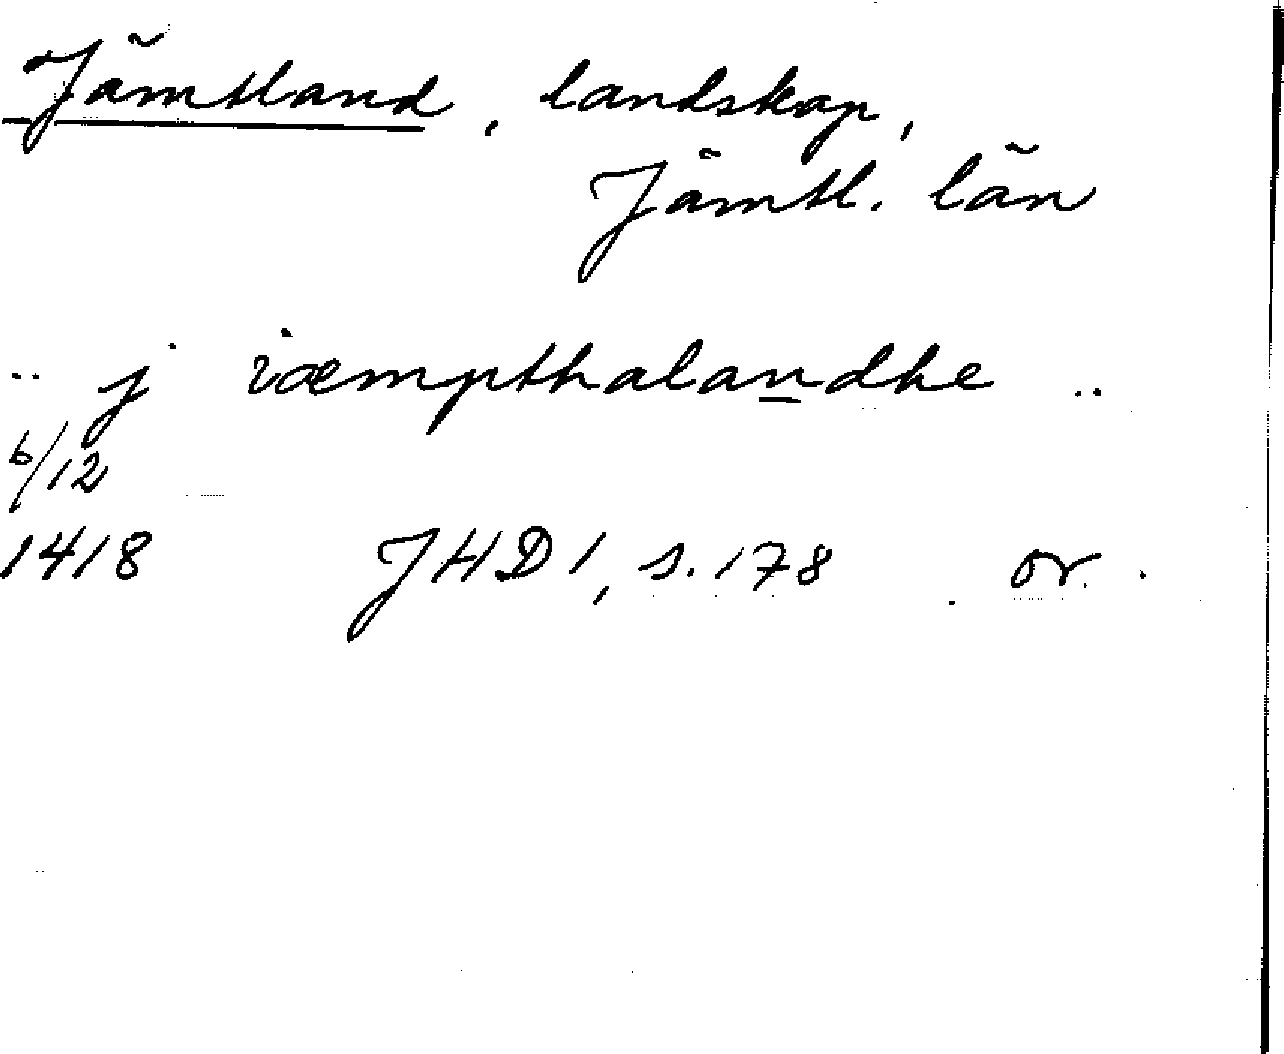 Jämtland, landskap,
Jämtl. län
.. j iæmpthalandhe ..
6/12
1418 JHD 1, s. 178 or.